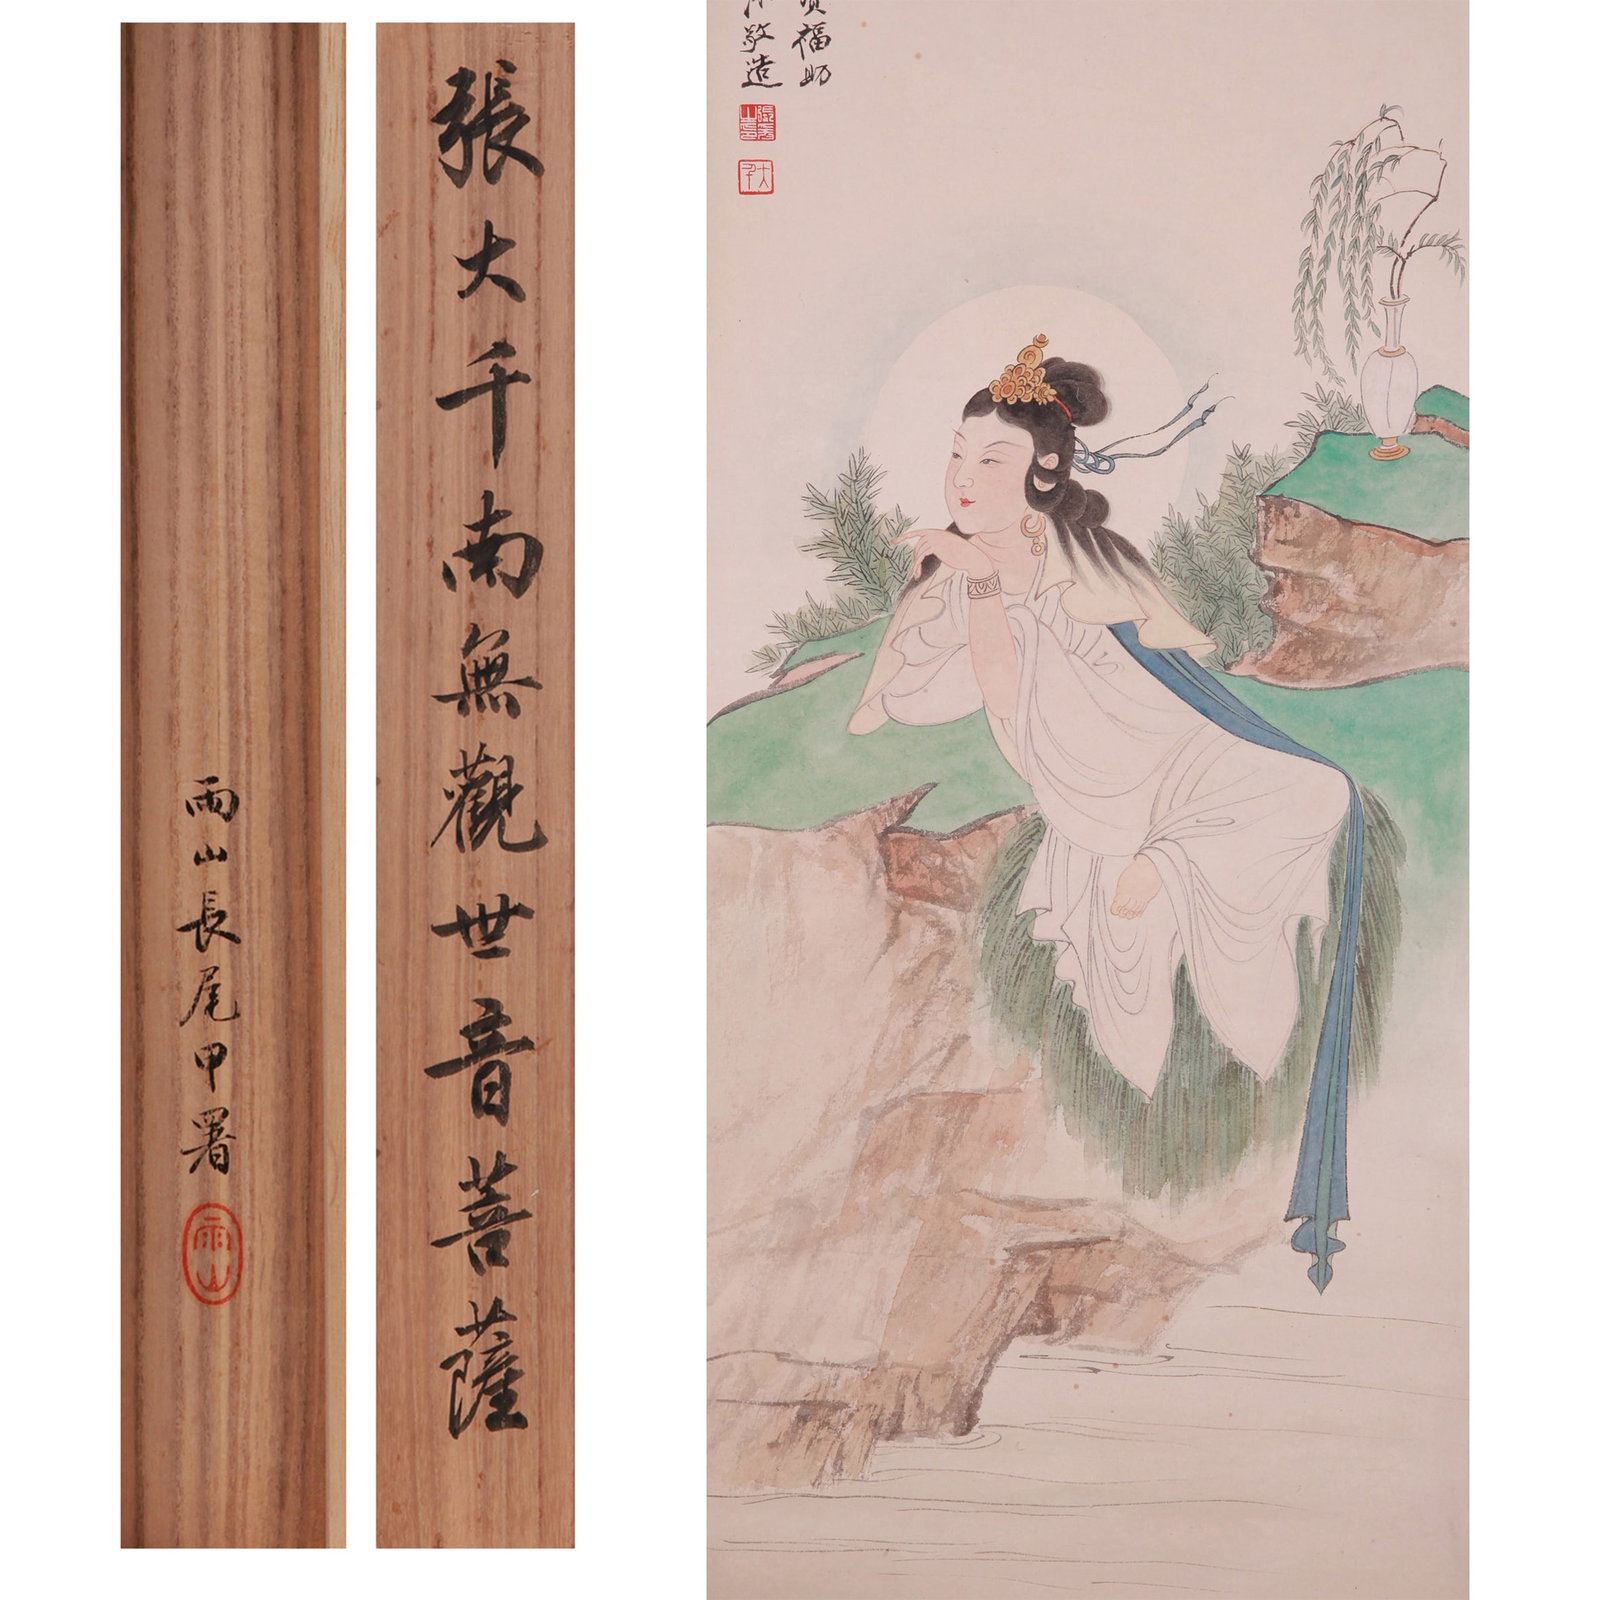 張大千南無觀世音菩薩
雨山長尾甲署
雨山
福助
敬造
大千